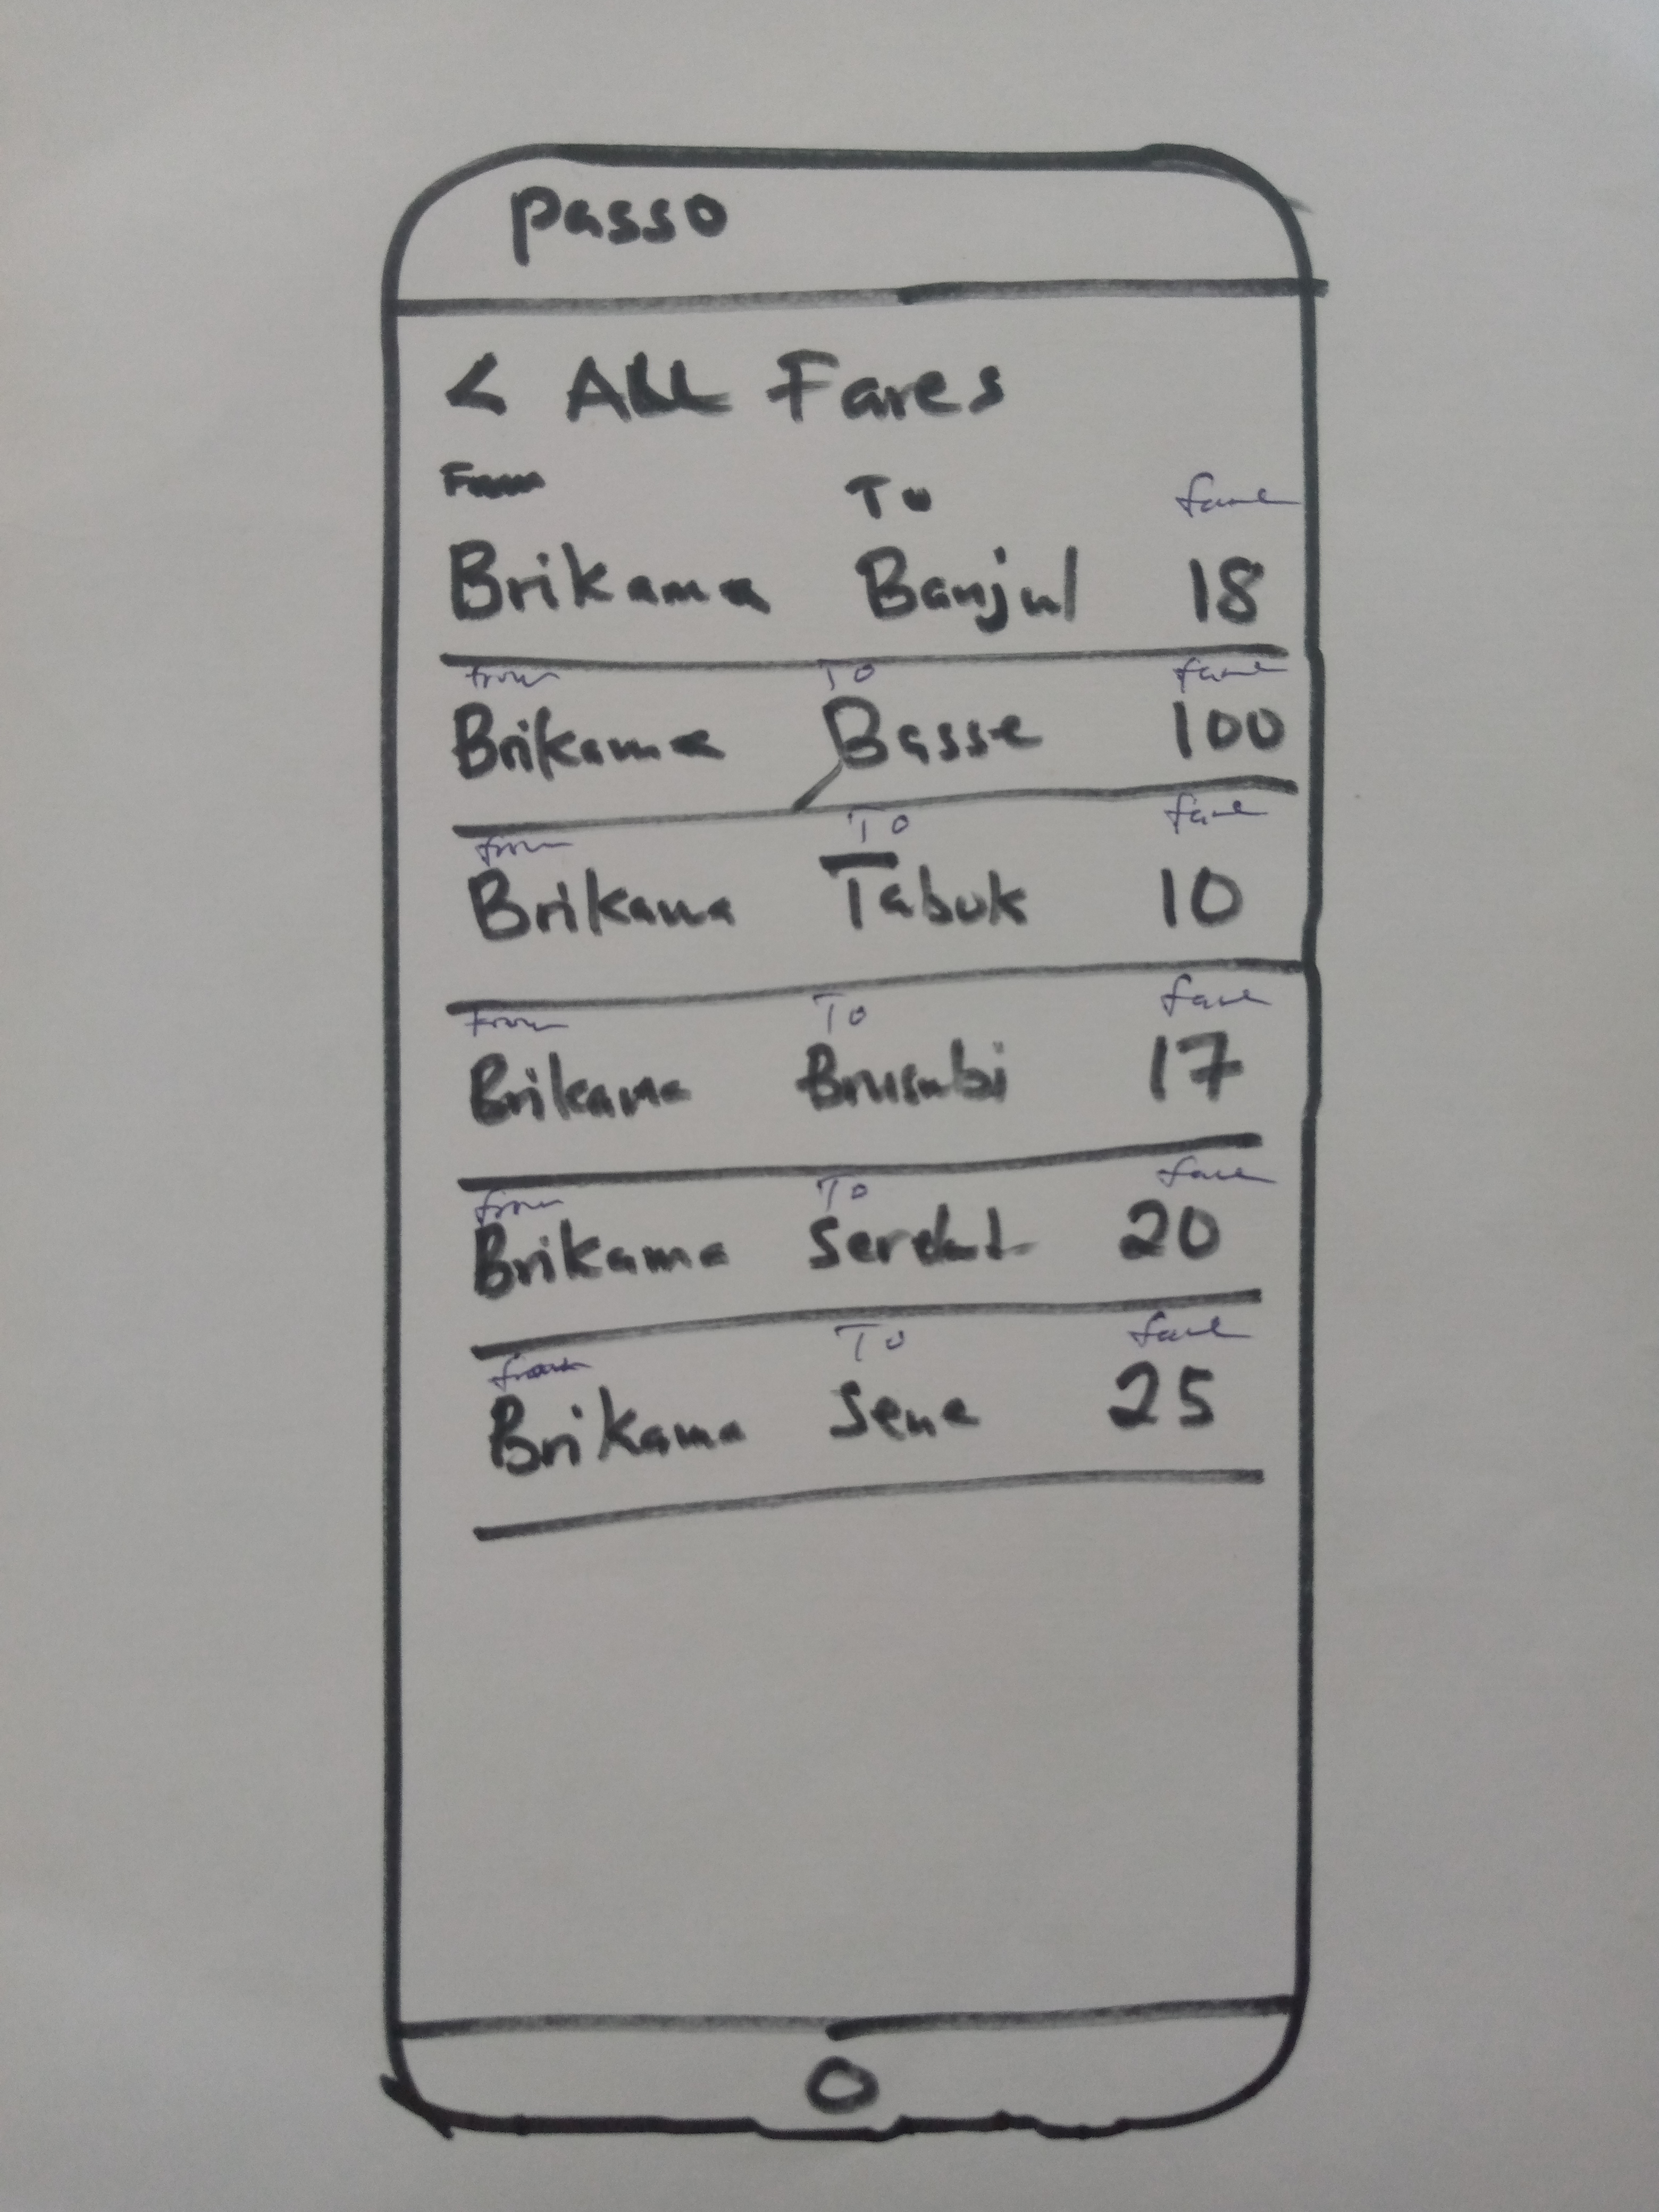 passo
< ALL Fares
From To fare
Brikama Banjul 18
from To fare
Brikama Basse 100
from To fare
Brikama Tabok 10
From To fare
Brikama Brusubi 17
from To fare
Brikama 20
from To fare
Brikama Sene 25